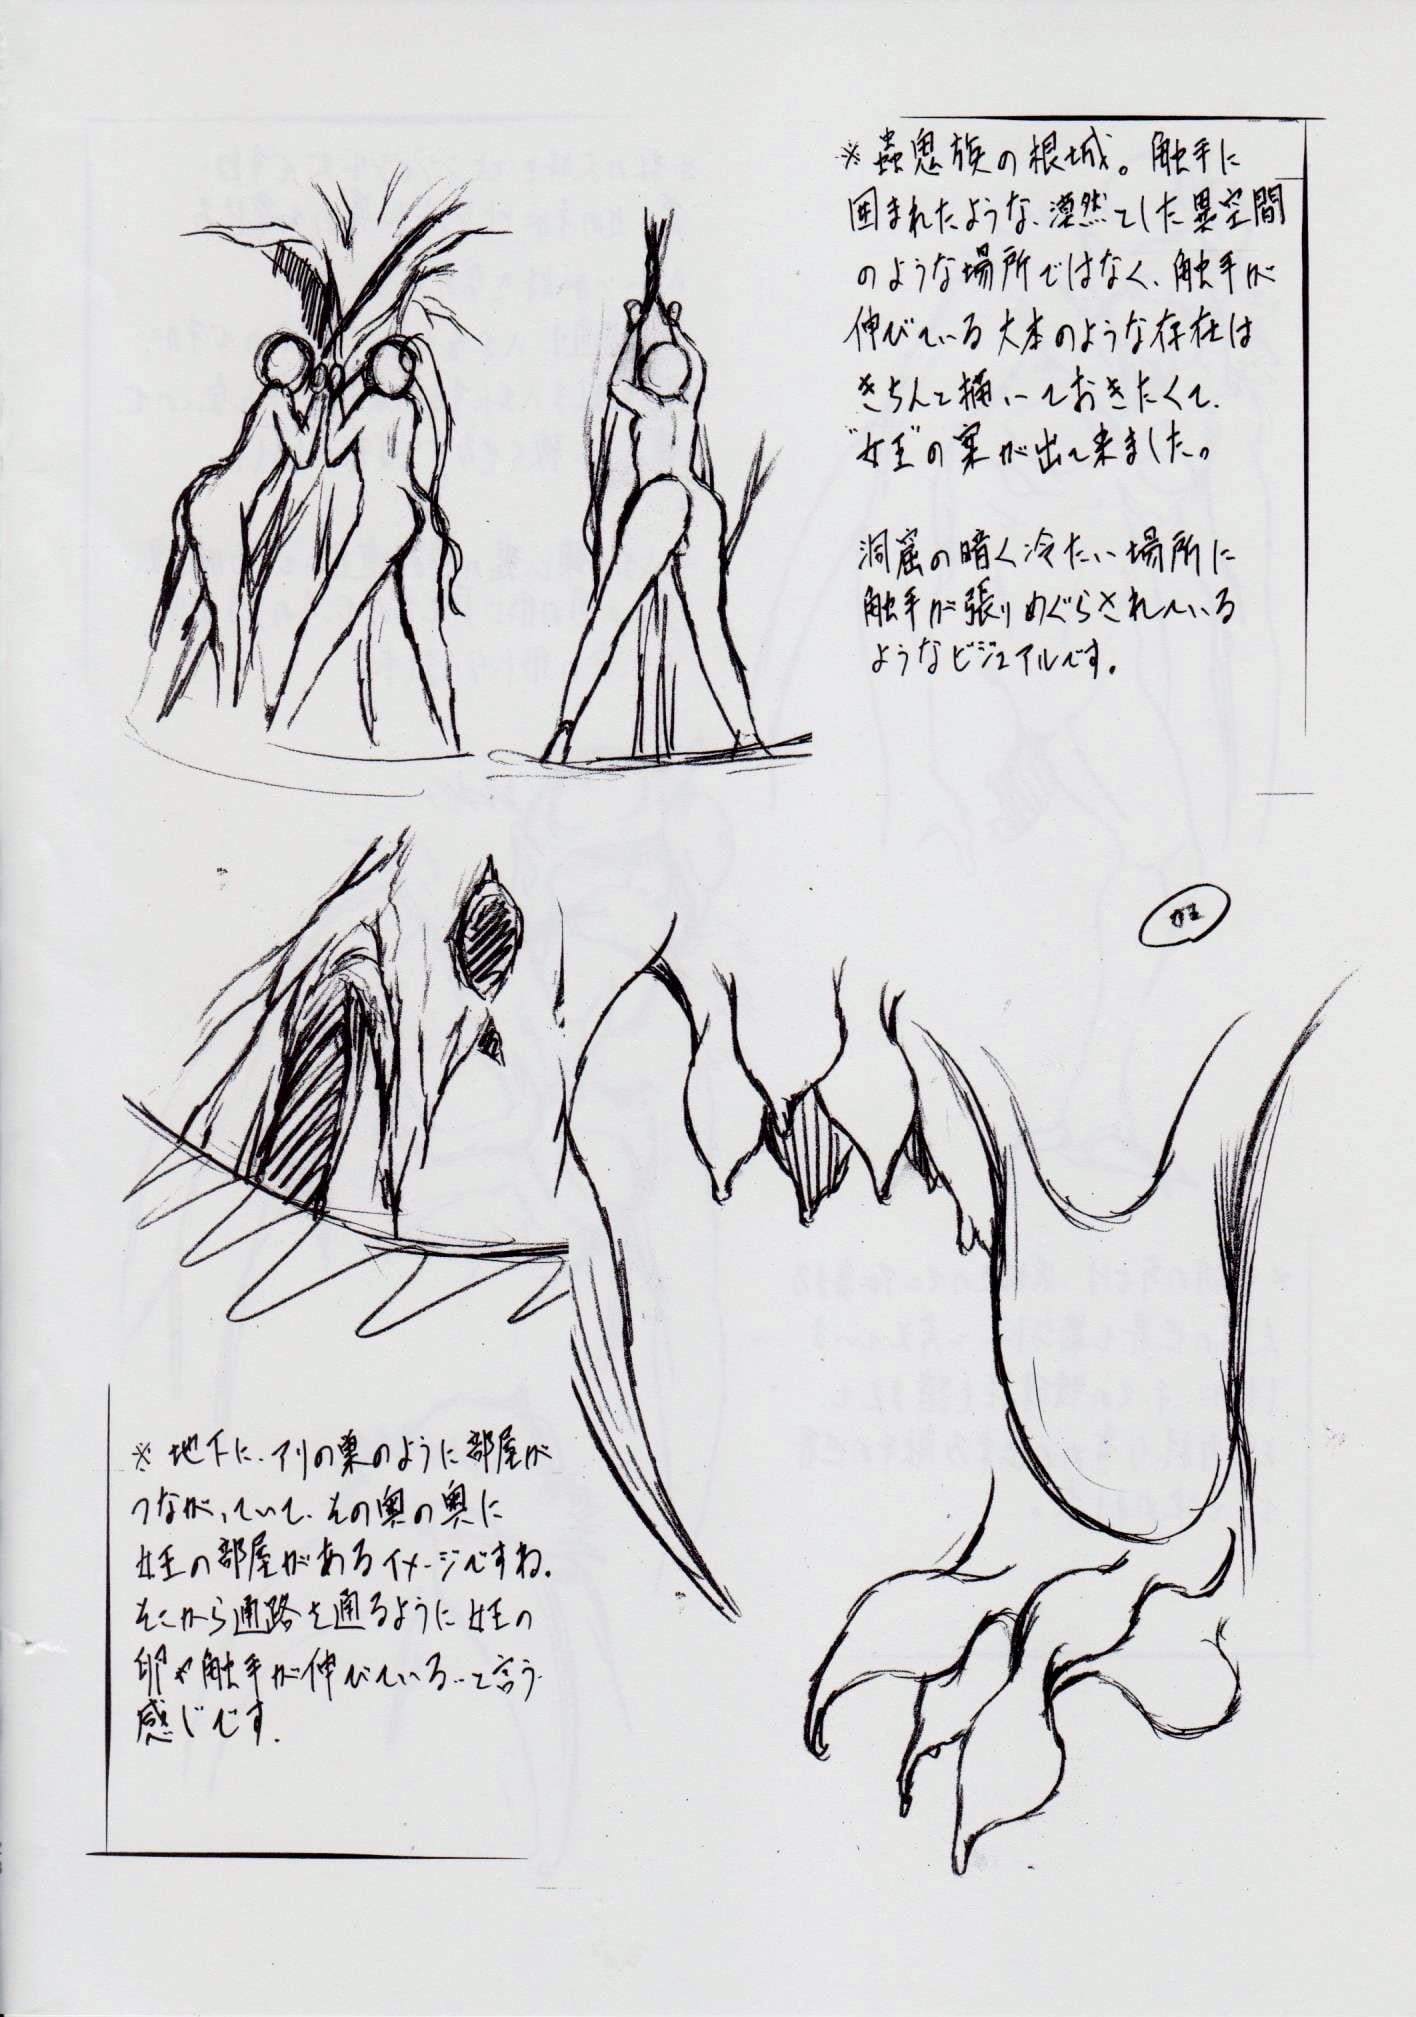 ※蟲鬼族の根城。触手に
囲まれたような、漠然とした異空間
のような場所ではなく、触手が
伸びている大本のような存在は
きちんと描いておきたくて、
"女王"の案が出て来ました。
洞窟の暗く冷たい場所に
触手が張りめぐらされている
ようなビジュアルです。
※地下に、アリの巣のように部屋が
つながっていて、その奥の奥に
女王の部屋があるイメージですね。
そこから通路を通るように女王の
卵や触手が伸びている…と言う
感じです。